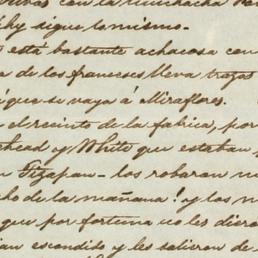 con la muchacha
sigue lo mismo.
está bastante achacosa con
de los franceses lleva trazas
que se vaya á Miraflores.
el recinto de la fabrica, por
y White que estaban
Tizapan - los robaron
de la mañana! y los
que por fortuna no les dieron
escondido y les salieron de